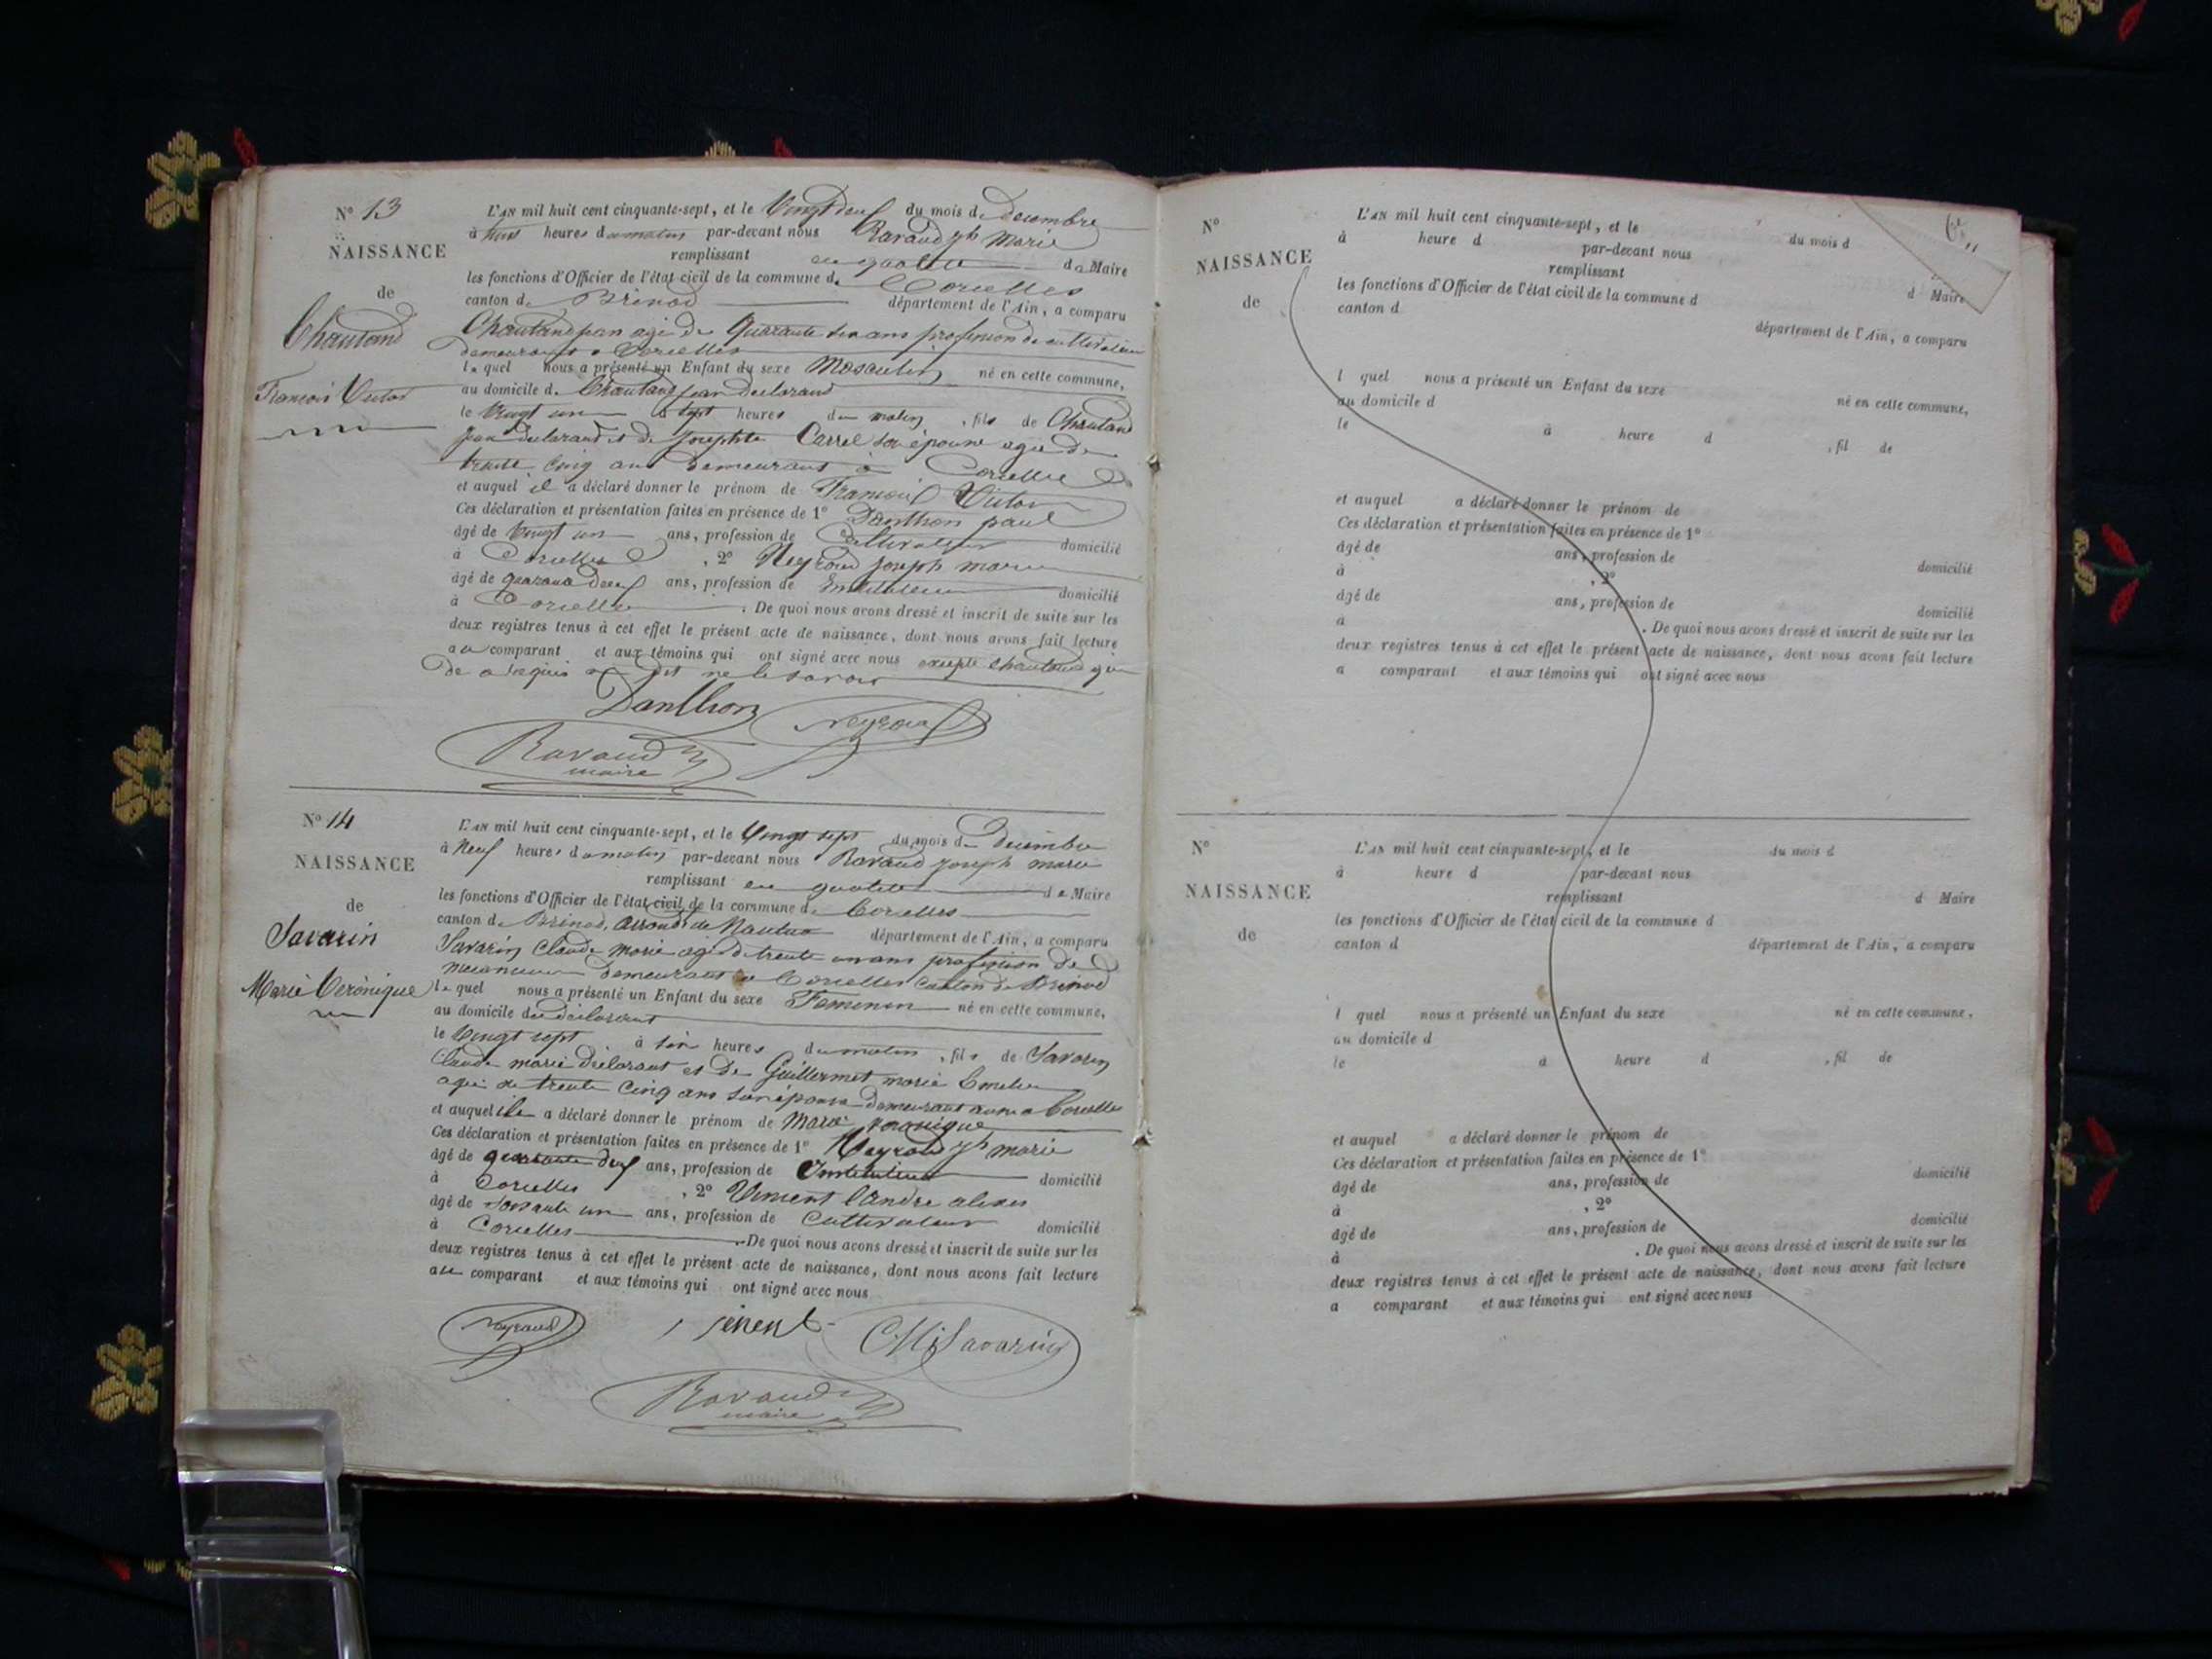 N° 13
NAISSANCE
de
Chautand
François Victor
L'AN mil huit cent cinquante-sept, et le Vingt deux du mois de decembre
à heures du matin par-devant nous Ravaud Jph Marie
remplissant en qualité de Maire
les fonctions d'Officier de l'état civil de la commune de Corcelles
canton de Brénod département de l'Ain, a comparu
Chautand jean agé de Quarante six ans profession de cultivateur
demeurant a Corcelles
lequel nous a présenté un Enfant du sexe Masculin né en cette commune,
au domicile de Chautand jean declarant
le Vingt un à sept heures du matin, fils de Chautand
jean declarant et de josephte Carrel son épouse agée de
trente cinq ans demeurant à Corcelles
et auquel il a déclaré donner le prénom de François Victor
Ces déclaration et présentation faites en présence de 1° Danthon paul
âgé de Vingt un ans, profession de Cultivateur domicilié
à Corcelles, 2° Neyroud joseph marie
âgé de quarante deux ans, profession de Instituteur domicilié
à Corcelles. De quoi nous avons dressé et inscrit de suite sur les
deux registres tenus à cet effet le présent acte de naissance, dont nous avons fait lecture
au comparant et aux témoins qui ont signé avec nous excepté Chautand qui
de ce requis a dit ne le savoir
Danthon Neyroud
Ravaud
maire
N° 14
NAISSANCE
de
Savarin
Marie Véronique
L'AN mil huit cent cinquante-sept, et le Vingt sept du mois de Decembre
à Neuf heures du matin par-devant nous Ravaud joseph marie
remplissant en qualité de Maire
les fonctions d'Officier de l'état civil de la commune de Corcelles
canton de Brénod, arrond. de Nantua département de l'Ain, a comparu
Savarin Claude Marie agé de trente un ans profession de
demeurant a Corcelles Canton de Brénod
lequel nous a présenté un Enfant du sexe Feminin né en cette commune,
au domicile du declarant
le Vingt sept à six heures du matin, fils de Savarin
Claude marie déclarant et de Guillermet marie
agée de trente cinq ans son épouse demeurant a Corcelles
et auquel il a déclaré donner le prénom de Marie veronique
Ces déclaration et présentation faites en présence de 1° Neyroud Jph marie
âgé de quarante deux ans, profession de Instituteur domicilié
à Corcelles, 2° André alexis
âgé de soixante un ans, profession de Cultivateur domicilié
à Corcelles. De quoi nous avons dressé et inscrit de suite sur les
deux registres tenus à cet effet le présent acte de naissance, dont nous avons fait lecture
au comparant et aux témoins qui ont signé avec nous
Neyroud CM Savarin
Ravaud
maire
N°
NAISSANCE
de
L'AN mil huit cent cinquante-sept, et le du mois d
à heure d par-devant nous
remplissant d Maire
les fonctions d'Officier de l'état civil de la commune d
canton d département de l'Ain, a comparu
l quel nous a présenté un Enfant du sexe né en cette commune,
au domicile d
le à heure d , fil de
et auquel a déclaré donner le prénom de
Ces déclaration et présentation faites en présence de 1°
âgé de ans, profession de domicilié
à , 2°
âgé de ans, profession de domicilié
à . De quoi nous avons dressé et inscrit de suite sur les
deux registres tenus à cet effet le présent acte de naissance, dont nous avons fait lecture
a comparant et aux témoins qui ont signé avec nous
N°
NAISSANCE
de
L'AN mil huit cent cinquante-sept, et le du mois d
à heure d par-devant nous
remplissant d Maire
les fonctions d'Officier de l'état civil de la commune d
canton d département de l'Ain, a comparu
l quel nous a présenté un Enfant du sexe né en cette commune,
au domicile d
le à heure d , fil de
et auquel a déclaré donner le prénom de
Ces déclaration et présentation faites en présence de 1°
âgé de ans, profession de domicilié
à , 2°
âgé de ans, profession de domicilié
à . De quoi nous avons dressé et inscrit de suite sur les
deux registres tenus à cet effet le présent acte de naissance, dont nous avons fait lecture
a comparant et aux témoins qui ont signé avec nous